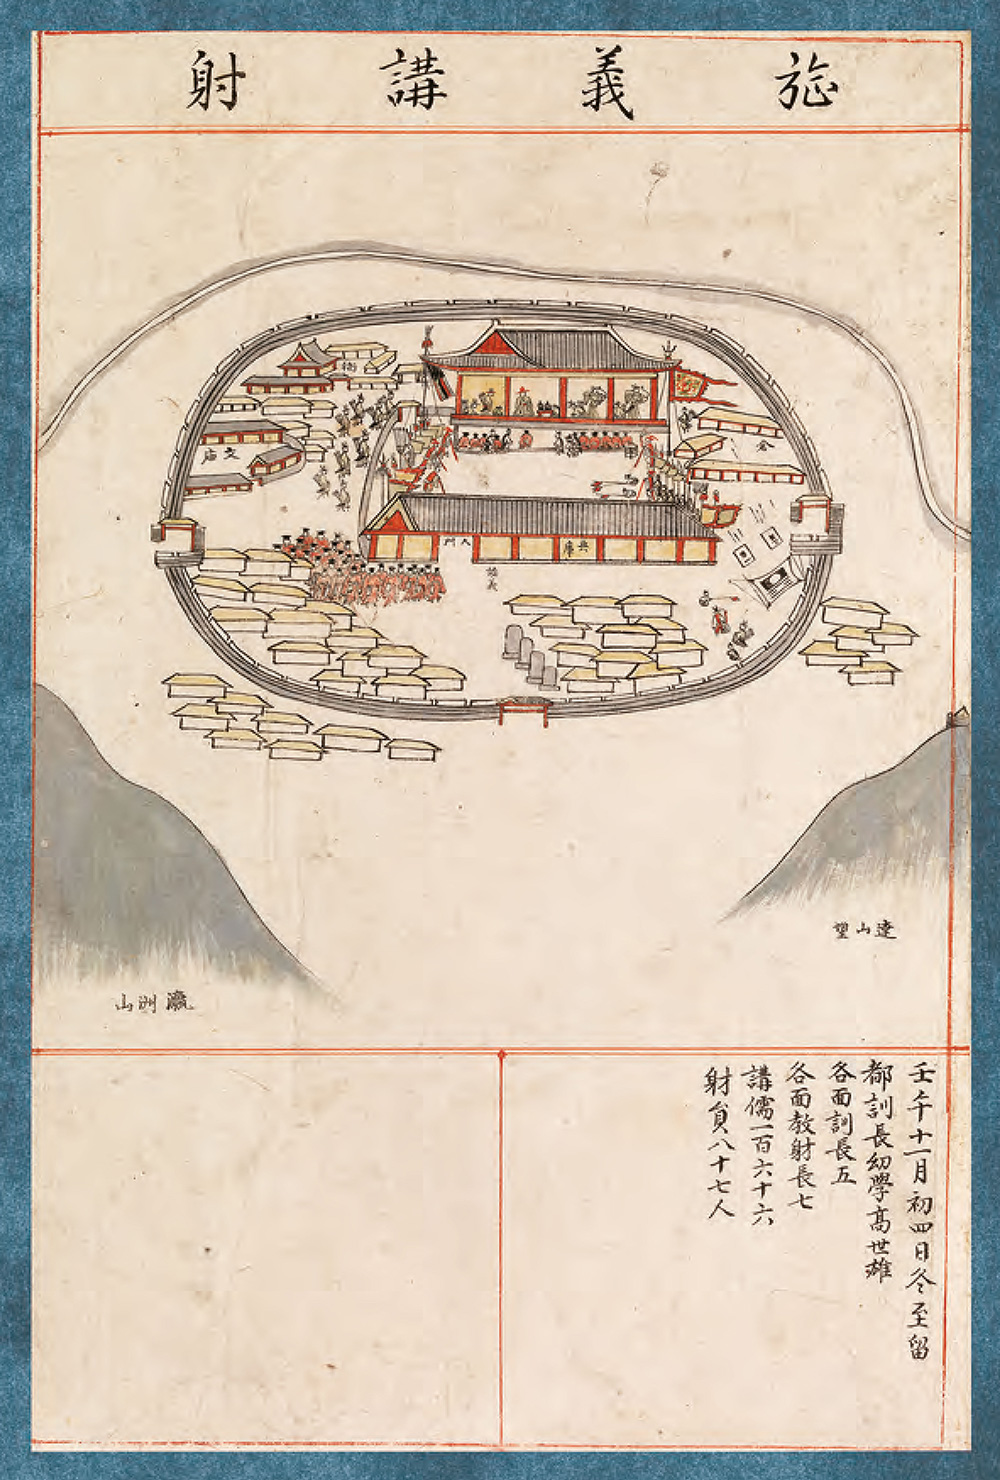 旌義講射
衙
文庙
倉
大門
兵庫
瀛洲山
達山望
壬午十一月初四日冬至留
都訓長幼學高世雄
各面訓長五
各面教射長七
講儒一百六十六
射員八十七人